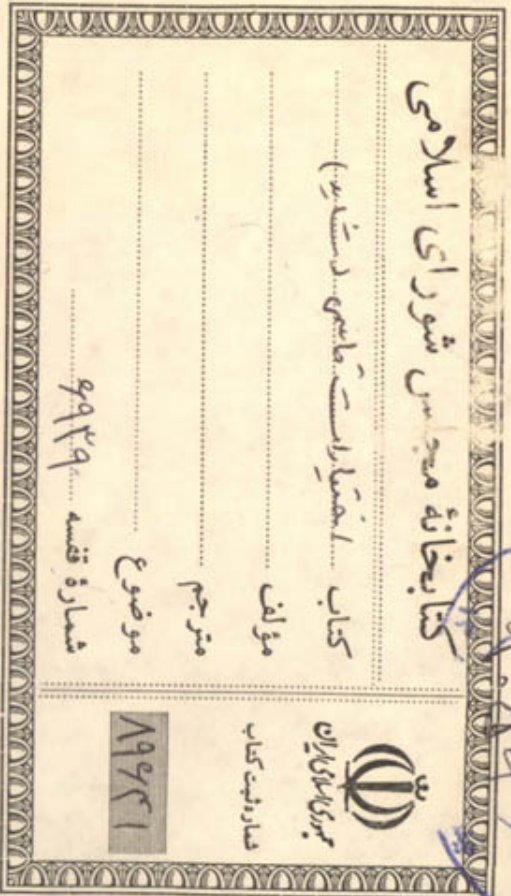 کتابخانهٔ مجلس شورای اسلامی
کتاب اختیارات قاسمی
مؤلف
مترجم
موضوع
شمارهٔ قفسه ۶۹۳۹
جمهوری اسلامی ایران
شماره ثبت کتاب
۸۹۶۴۱